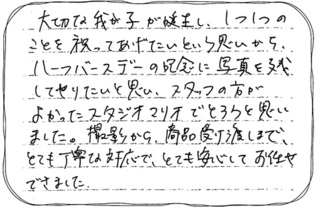 大切な我が子が誕生し、1つ1つの
ことを祝ってあげたいという思いから、
ハーフバースデーの記念に写真を残
してやりたいと思い、スタッフの方が
よかったスタジオマリオでとろうと思い
ました。撮影から、商品受け渡しまで、
とても丁寧な対応で、とても安心してお任せ
できました。